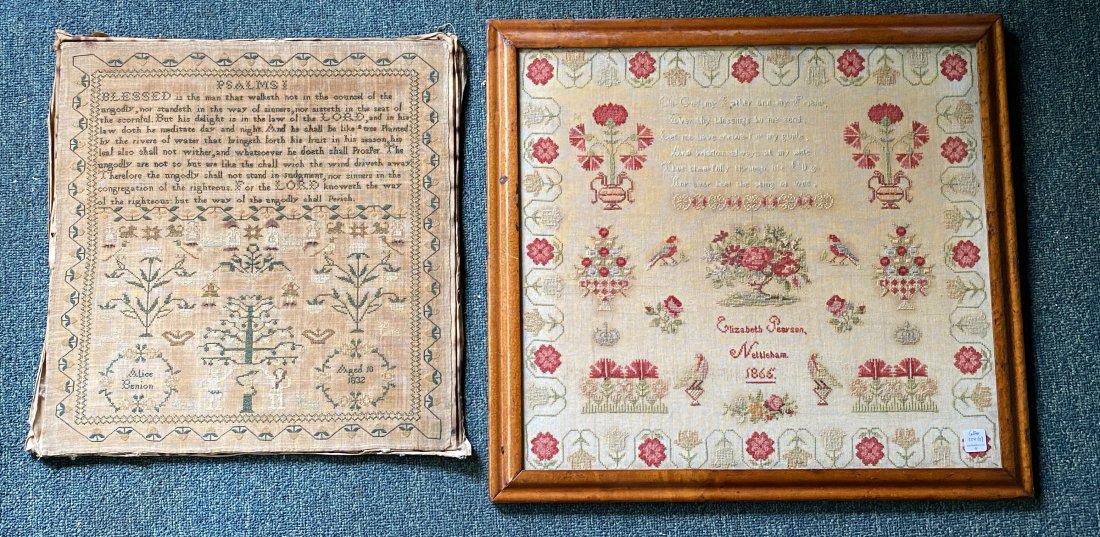 PSALMS I
BLESSED is the man that walketh not in the counsel of the
ungodly, nor standeth in the way of sinners, nor sitteth in the seat of
the scornful. But his delight is in the law of the LORD, and in his
law doth he meditate day and night. And he shall be like a tree Planted
by the rivers of water that bringeth forth his fruit in his season, his
leaf also shall not wither, and whatsoever he doeth shall Prosper. The
ungodly are not so but are like the chaff wich the wind driveth away
Therefore the ungodly shall not stand in judgment, nor sinners in the
congregation of the righteous. For the LORD knoweth the way
of the righteous: but the way of the ungodly shall Perish.
Alice
Benion
Aged 10
1832
Oh God my Father and my Friend
Ever thy blessings to me send
Let me have
And wisdom always at my side
cheerfully through
the
Elizabeth Pearson,
Nettleham.
1865.